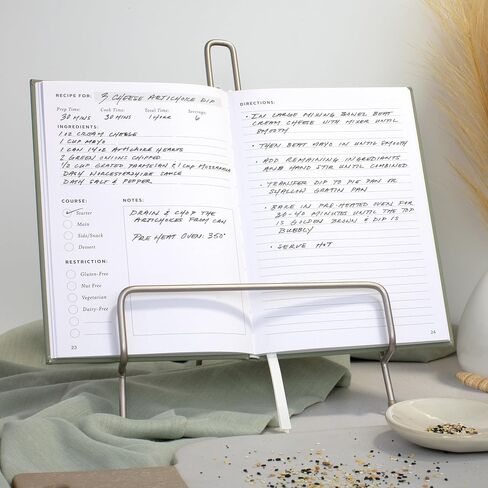 RECIPE FOR: 3 CHEESE ARTICHOKE DIP
Prep Time: Cook Time: Total Time: Servings:
30 MINS 30 MINS 1 HOUR 6
INGREDIENTS:
1 OZ CREAM CHEESE
1 CUP MAYO
1 CAN 14 OZ ARTICHOKE HEARTS
2 GREEN ONIONS CHOPPED
1/2 CUP GRATED PARMESIAN & 1 CUP MOZZARELLA
DASH WORCESTERSHIRE SAUCE
DASH SALT & PEPPER
COURSE:
Starter
Main
Side/Snack
Dessert
RESTRICTION:
Gluten-Free
Nut Free
Vegetarian
Dairy-Free
NOTES:
DRAIN & CHOP THE
ARTICHOKES FROM CAN
PRE HEAT OVEN: 350°
23
DIRECTIONS:
• IN LARGE MIXING BOWEL BEAT
CREAM CHEESE WITH MIXER UNTIL
SMOOTH
• THEN BEAT MAYO IN UNTIL SMOOTH
• ADD REMAINING INGREDIANTS
AND HAND STIR UNTIL COMBINED
• TRANSFER DIP TO PIE PAN OR
SHALLOW GRATIN PAN
• BAKE IN PRE-HEATED OVEN FOR
30-40 MINUTES UNTIL THE TOP
IS GOLDEN BROWN & DIP IS
BUBBLY
• SERVE HOT
24